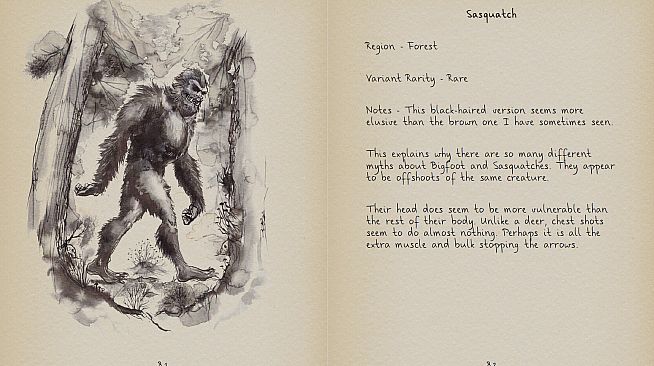 Sasquatch
Region - Forest
Variant Rarity - Rare
Notes - This black-haired version seems more
elusive than the brown one I have sometimes seen.
This explains why there are so many different
myths about Bigfoot and Sasquatches. They appear
to be offshoots of the same creature.
Their head does seem to be more vulnerable than
the rest of their body. Unlike a deer, chest shots
seem to do almost nothing. Perhaps it is all the
extra muscle and bulk stopping the arrows.